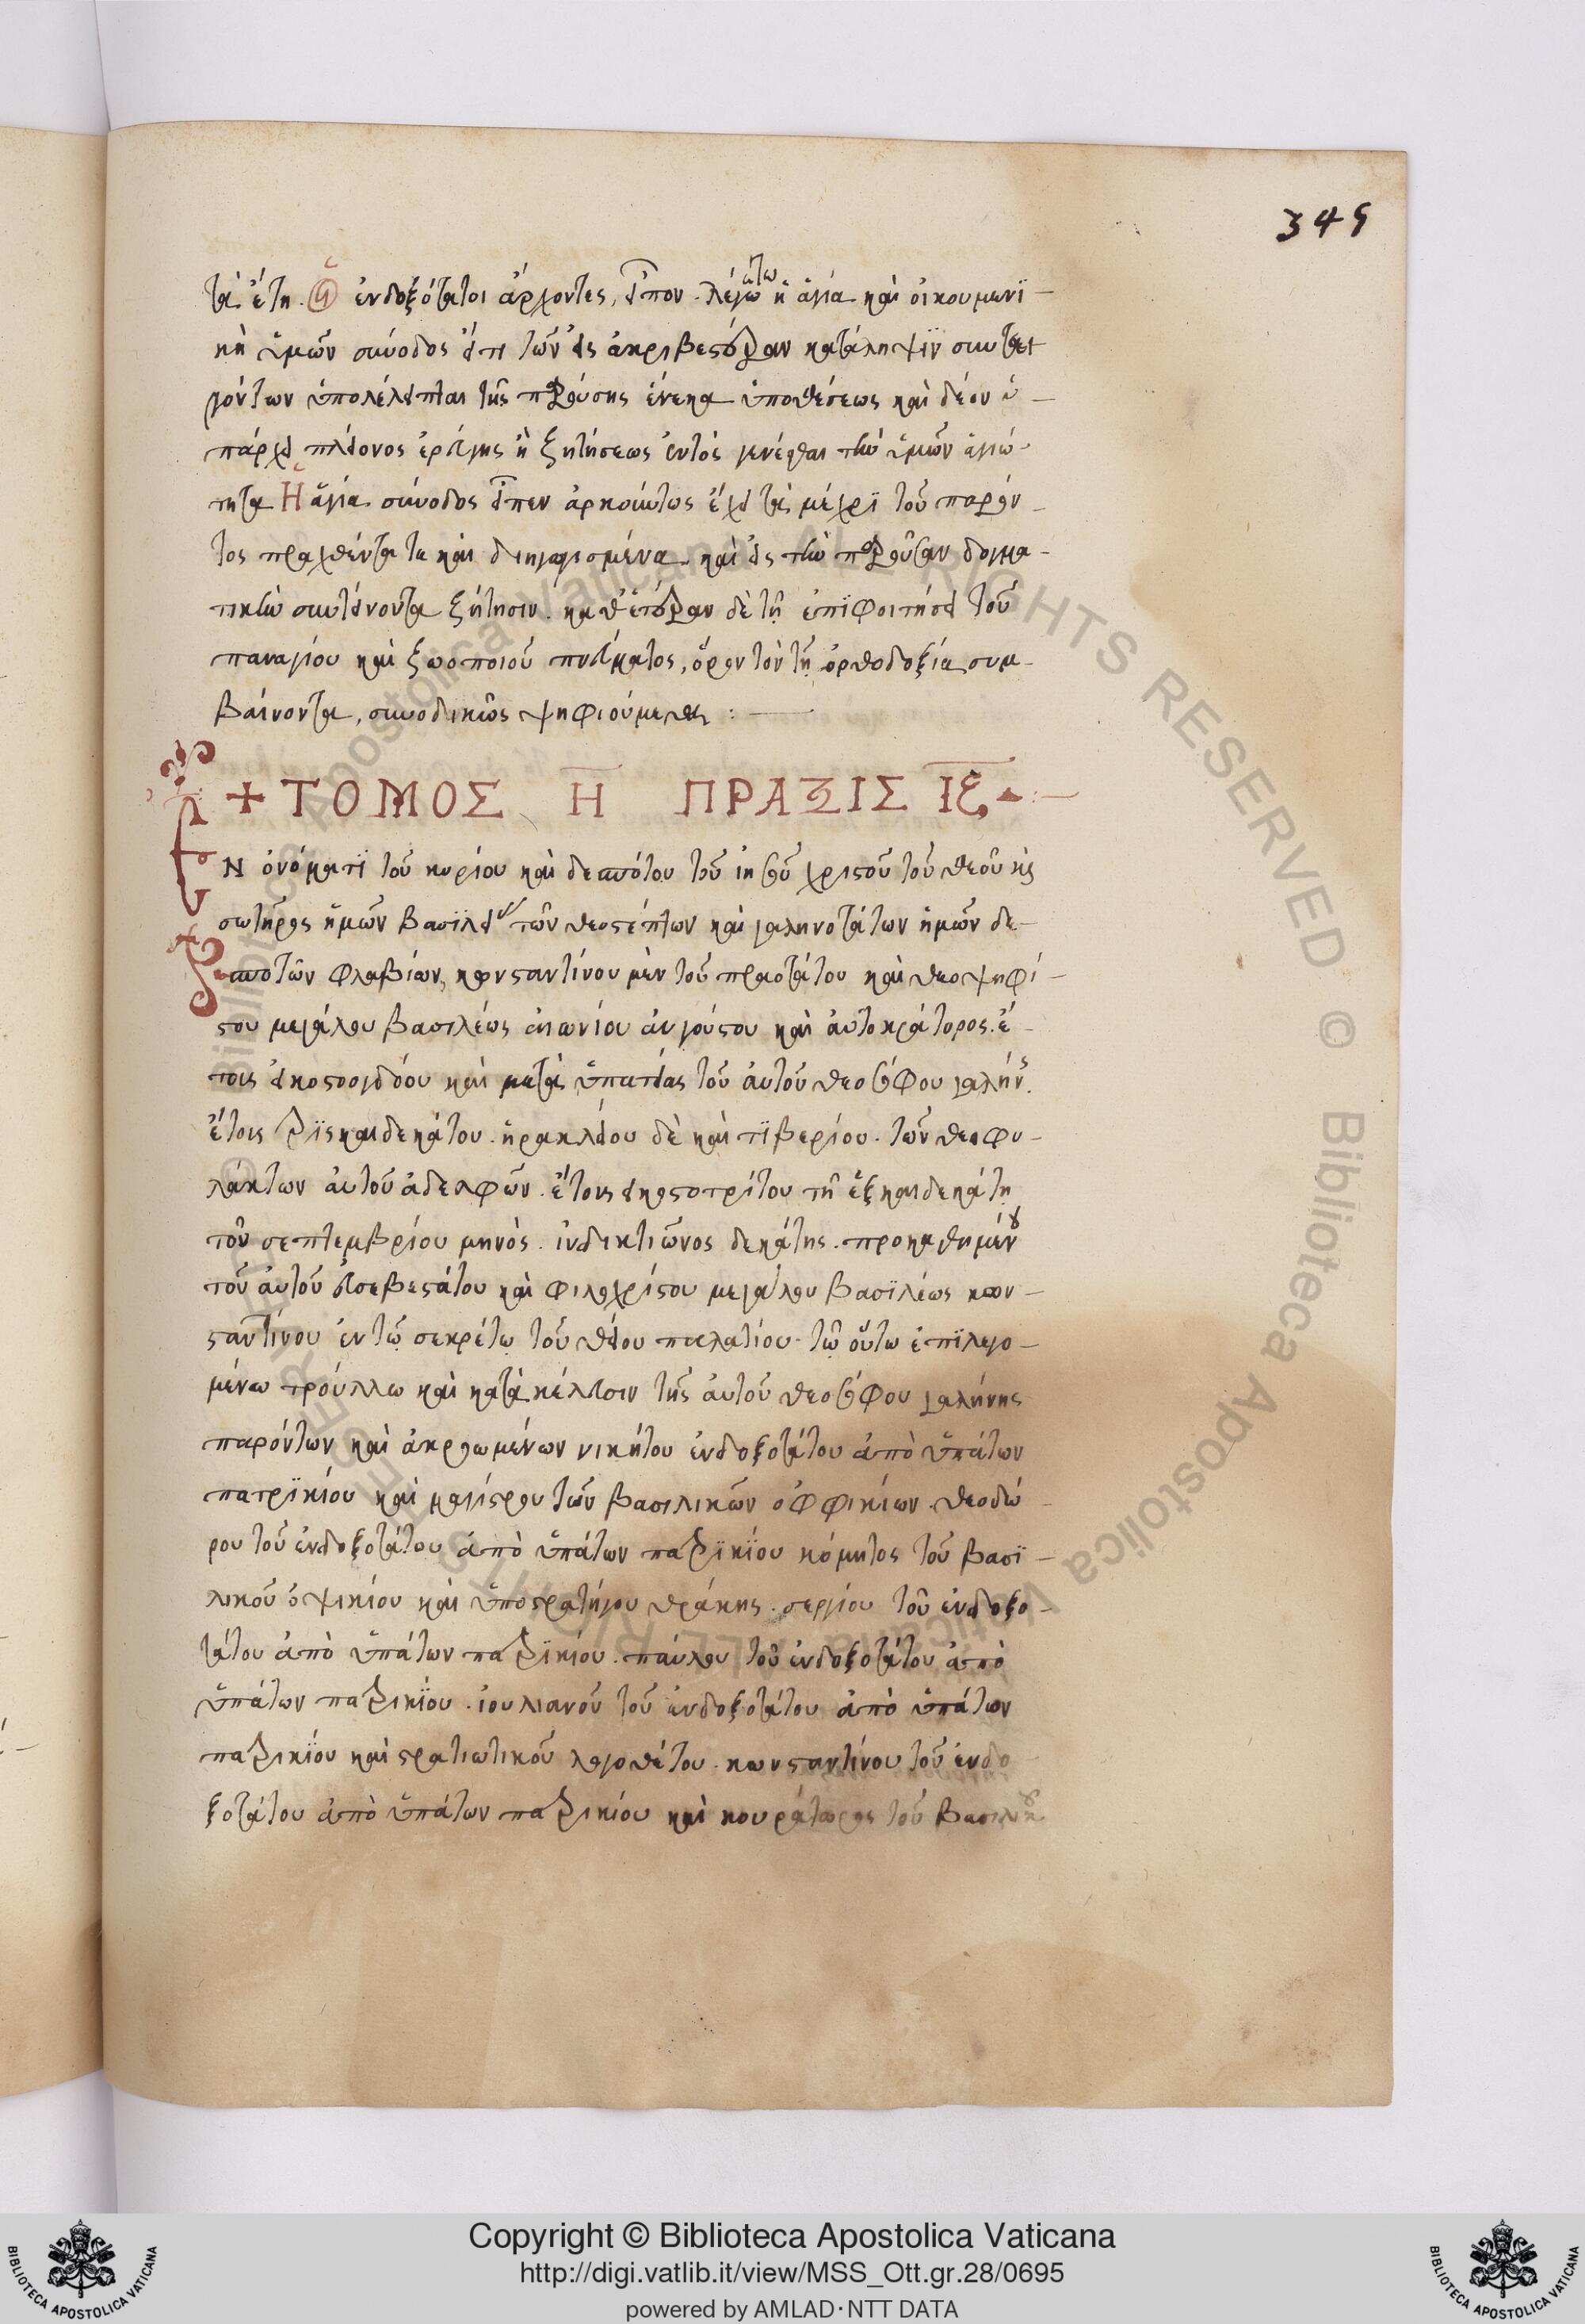 349
τὰ ἔτη. Οἱ ἐνδοξότατοι ἄρχοντες, εἶπον. λεγέτω ἡ ἁγία καὶ οἰκουμενϊ
κὴ ὑμῶν σύνοδος εἴ τι τῶν εἰς ἀκριβεστέραν κατάληψϊν συντει
νόντων ὑπολέλειπται τῆς παρούσης ἕνεκα ὑποθέσεως καὶ δέον ὑ
πάρχει πλείονος ἐρεύνης ἢ ζητήσεως ἐντὸς γενέσθαι τὴν ὑμῶν ἁγιό
τητα Ἡ ἁγία σύνοδος εἶπεν ἀρκούντως ἔχει τὰ μέχρϊ τοῦ παρόν
τος πραχθέντα τε καὶ διηγορισμένα καὶ εἰς τὴν παροῦσαν δογμα
τικὴν συντείνοντα ζήτησιν. καθ' ἑτέραν δὲ τῇ ἐπϊφοιτήσει τοῦ
παναγίου καὶ ζωοποιοῦ πνεύματος, ὅρον τὸν τῇ ὀρθοδοξία συμ
βαίνοντα, συνοδικῶς ψηφιούμεθα :
+ ΤΟΜΟΣ Η ΠΡΑΞΙΣ ΙΞ
Ἐν ὀνόματϊ τοῦ κυρίου καὶ δεσπότου τοῦ ἰησοῦ χριστοῦ τοῦ θεοῦ καὶ
σωτῆρος ἡμῶν βασϊλείας τῶν θεοστέπτων καὶ γαληνοτάτων ἡμῶν δε
σποτῶν φλαβίων, κωνσταντίνου μὲν τοῦ πραοτάτου καὶ θεοψηφί
στου μεγάλου βασιλέως αἰωνίου αὐγούστου καὶ αὐτοκράτορος. ἔ
τους εἰκοστοογδόου καὶ μετὰ ὑπατείας τοῦ αὐτοῦ θεοσόφου γαλήν.
ἔτους τρϊσκαιδεκάτου. ἡρακλείου δὲ καὶ τϊβερίου. τῶν θεοφυ
λάκτων αὐτοῦ ἀδελφῶν. ἔτους εἰκοστοτρίτου τῇ ἑξκαιδεκάτη
τοῦ σεπτεμβρίου μηνὸς. ἰνδικτιῶνος δεκάτης. προκαθημένου
τοῦ αὐτοῦ εὐσεβεστάτου καὶ φιλοχρίστου μεγάλου βασϊλέως κων
σταντίνου ἐν τῷ σεκρέτῳ τοῦ θείου παλατίου. τῷ οὕτω ἐπϊλεγο
μένω τρούλλω καὶ κατὰ κέλευσιν τῆς αὐτοῦ θεοσόφου γαλήνης
παρόντων καὶ ἀκροωμένων νικήτου ἐνδοξοτάτου ἀπὸ ὑπάτων
πατρϊκίου καὶ μαγίστρου τῶν βασιλικῶν ὀφφικίων. θεοδώ
ρου τοῦ ἐνδοξοτάτου ἀπὸ ὑπάτων πατρϊκίου κόμητος τοῦ βασϊ
λικοῦ ὀψικίου καὶ ὑποστρατήγου θράκης. σεργίου τοῦ ἐνδοξο
τάτου ἀπὸ ὑπάτων πατρϊκίου. παύλου τοῦ ἐνδοξοτάτου ἀπὸ
ὑπάτων πατρικίου. ἰουλιανοῦ τοῦ ἐνδοξοτάτου ἀπὸ ὑπάτων
πατρικίου καὶ στρατιωτικοῦ λογοθέτου. κωνσταντίνου τοῦ ἐνδο
ξοτάτου ἀπὸ ὑπάτων πατρικίου καὶ κουράτωρος τοῦ βασιλικοῦ
© Biblioteca Apostolica Vaticana ALL RIGHTS RESERVED © Biblioteca Apostolica Vaticana ALL RIGHTS RESERVED
BIBLIOTECA APOSTOLICA VATICANA
Copyright © Biblioteca Apostolica Vaticana
http://digi.vatlib.it/view/MSS_Ott.gr.28/0695
powered by AMLAD·NTT DATA
BIBLIOTECA APOSTOLICA VATICANA